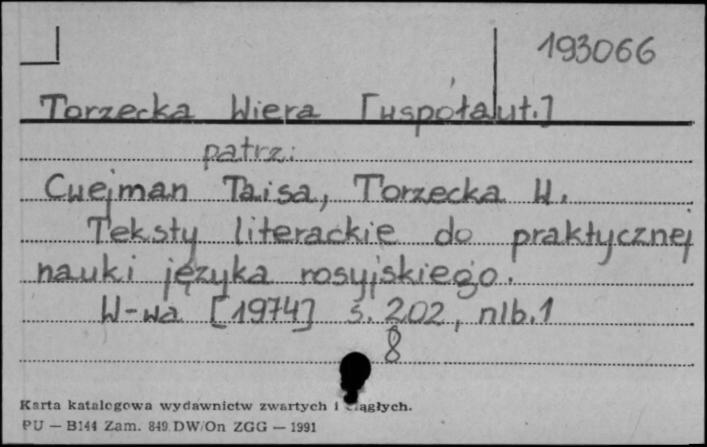 193066
Torzecka Wiera [współaut.]
patrz:
Cwejman Taisa, Torzecka W.
Teksty literackie do praktycznej
nauki języka rosyjskiego.
W-wa [1974] s. 202, nlb. 1
8
Karta katalogowa wydawnictw zwartych i ciągłych.
PU — B144 Zam. 849 DW/On ZGG — 1991